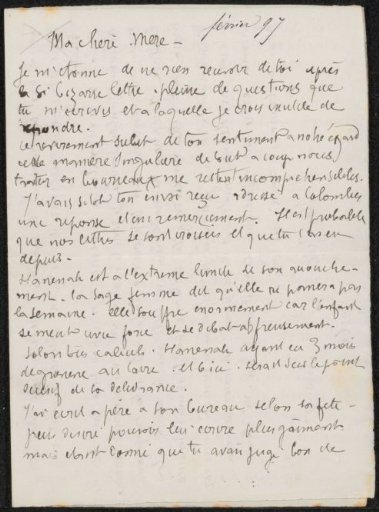 février 97
Ma chère Mère -
Je m'étonne de ne rien recevoir de toi après
si bizarre lettre pleine de questions que
tu m'écrivis et à laquelle je crois inutile de
répondre.
Ce revirement subit de ton sentiment à notre égard
cette manière singulière de tout à coup nous
traiter en bourreaux me restent incompréhensibles.
J'avais sitôt ton envoi reçu adressé à Colombes
une réponse et un remerciement. Il est probable
que nos lettres se sont croisées et que tu l'as eu
depuis.
Hanenah est à l'extrême limite de son accouche-
ment. La sage femme dit qu'elle ne passera pas
la semaine. Elle souffre énormément car l'enfant
se meut avec force et se débat affreusement.
Selon tes calculs. Hanenah ayant eu 3 mois
de grossesse au Caire. et 6 ici. serait sur le point
de sa délivrance.
J'ai écrit à père à son bureau selon sa fête -
pouvoir lui écrire plus gaiment
mais étant donné que tu avais jugé bon de